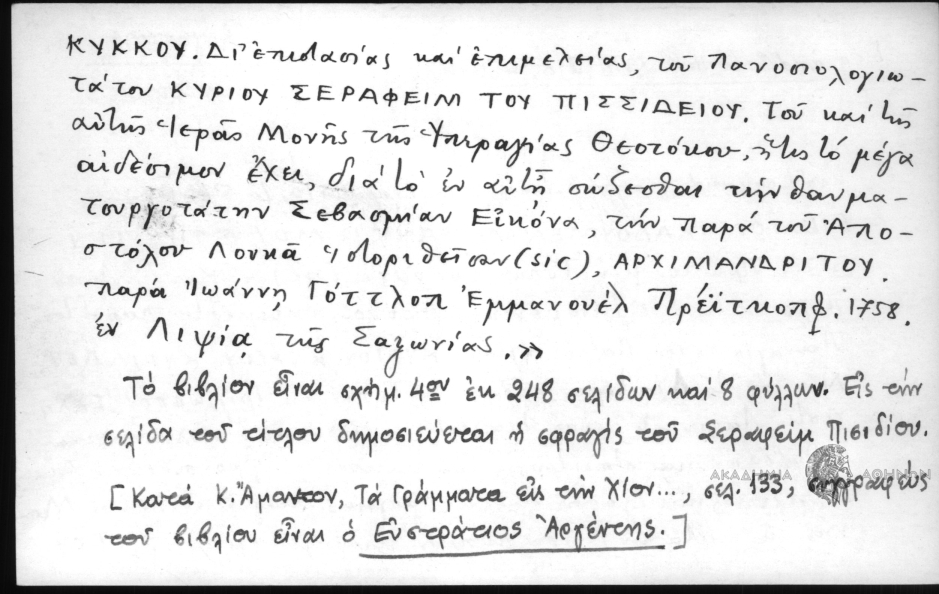 ΚΥΚΚΟΥ. Δι' ἐπιστασίας καί ἐπιμελείας, τοῦ Πανοσιολογιω-
τάτου ΚΥΡΙΟΥ ΣΕΡΑΦΕΙΜ ΤΟΥ ΠΙΣΣΙΔΕΙΟΥ. Τοῦ καί τῆς
αὐτῆς Ἱερᾶς Μονῆς τῆς Ὑπεραγίας Θεοτόκου, ἥτις τό μέγα
αἰδέσιμον ἔχει, διά τό ἐν αὐτῇ σώζεσθαι τήν θαυμα-
τουργοτάτην Σεβασμίαν Εἰκόνα, τήν παρά τοῦ Ἀπο-
στόλου Λουκᾶ Ἱστοριθεῖσαν (sic), ΑΡΧΙΜΑΝΔΡΙΤΟΥ.
παρά Ἰωάννῃ Γόττλοπ Ἐμμανουέλ Πρέϊτκοπφ. 1758.
ἐν Λιψίᾳ τῆς Σαξωνίας.»
Τό βιβλίον εἶναι σχήμ. 4ον ἐκ 248 σελίδων καί 8 φύλλων. Εἰς τήν
σελίδα τοῦ τίτλου δημοσιεύεται ἡ σφραγίς τοῦ Σεραφείμ Πισιδίου.
ΑΚΑΔΗΜΙΑ ΑΘΗΝΩΝ
[Κατά Κ. Ἄμαντον, Τά Γράμματα εἰς τήν Χίον..., σελ. 133, συγγραφεύς
τοῦ βιβλίου εἶναι ὁ Εὐστράτιος Ἀργέντης.]